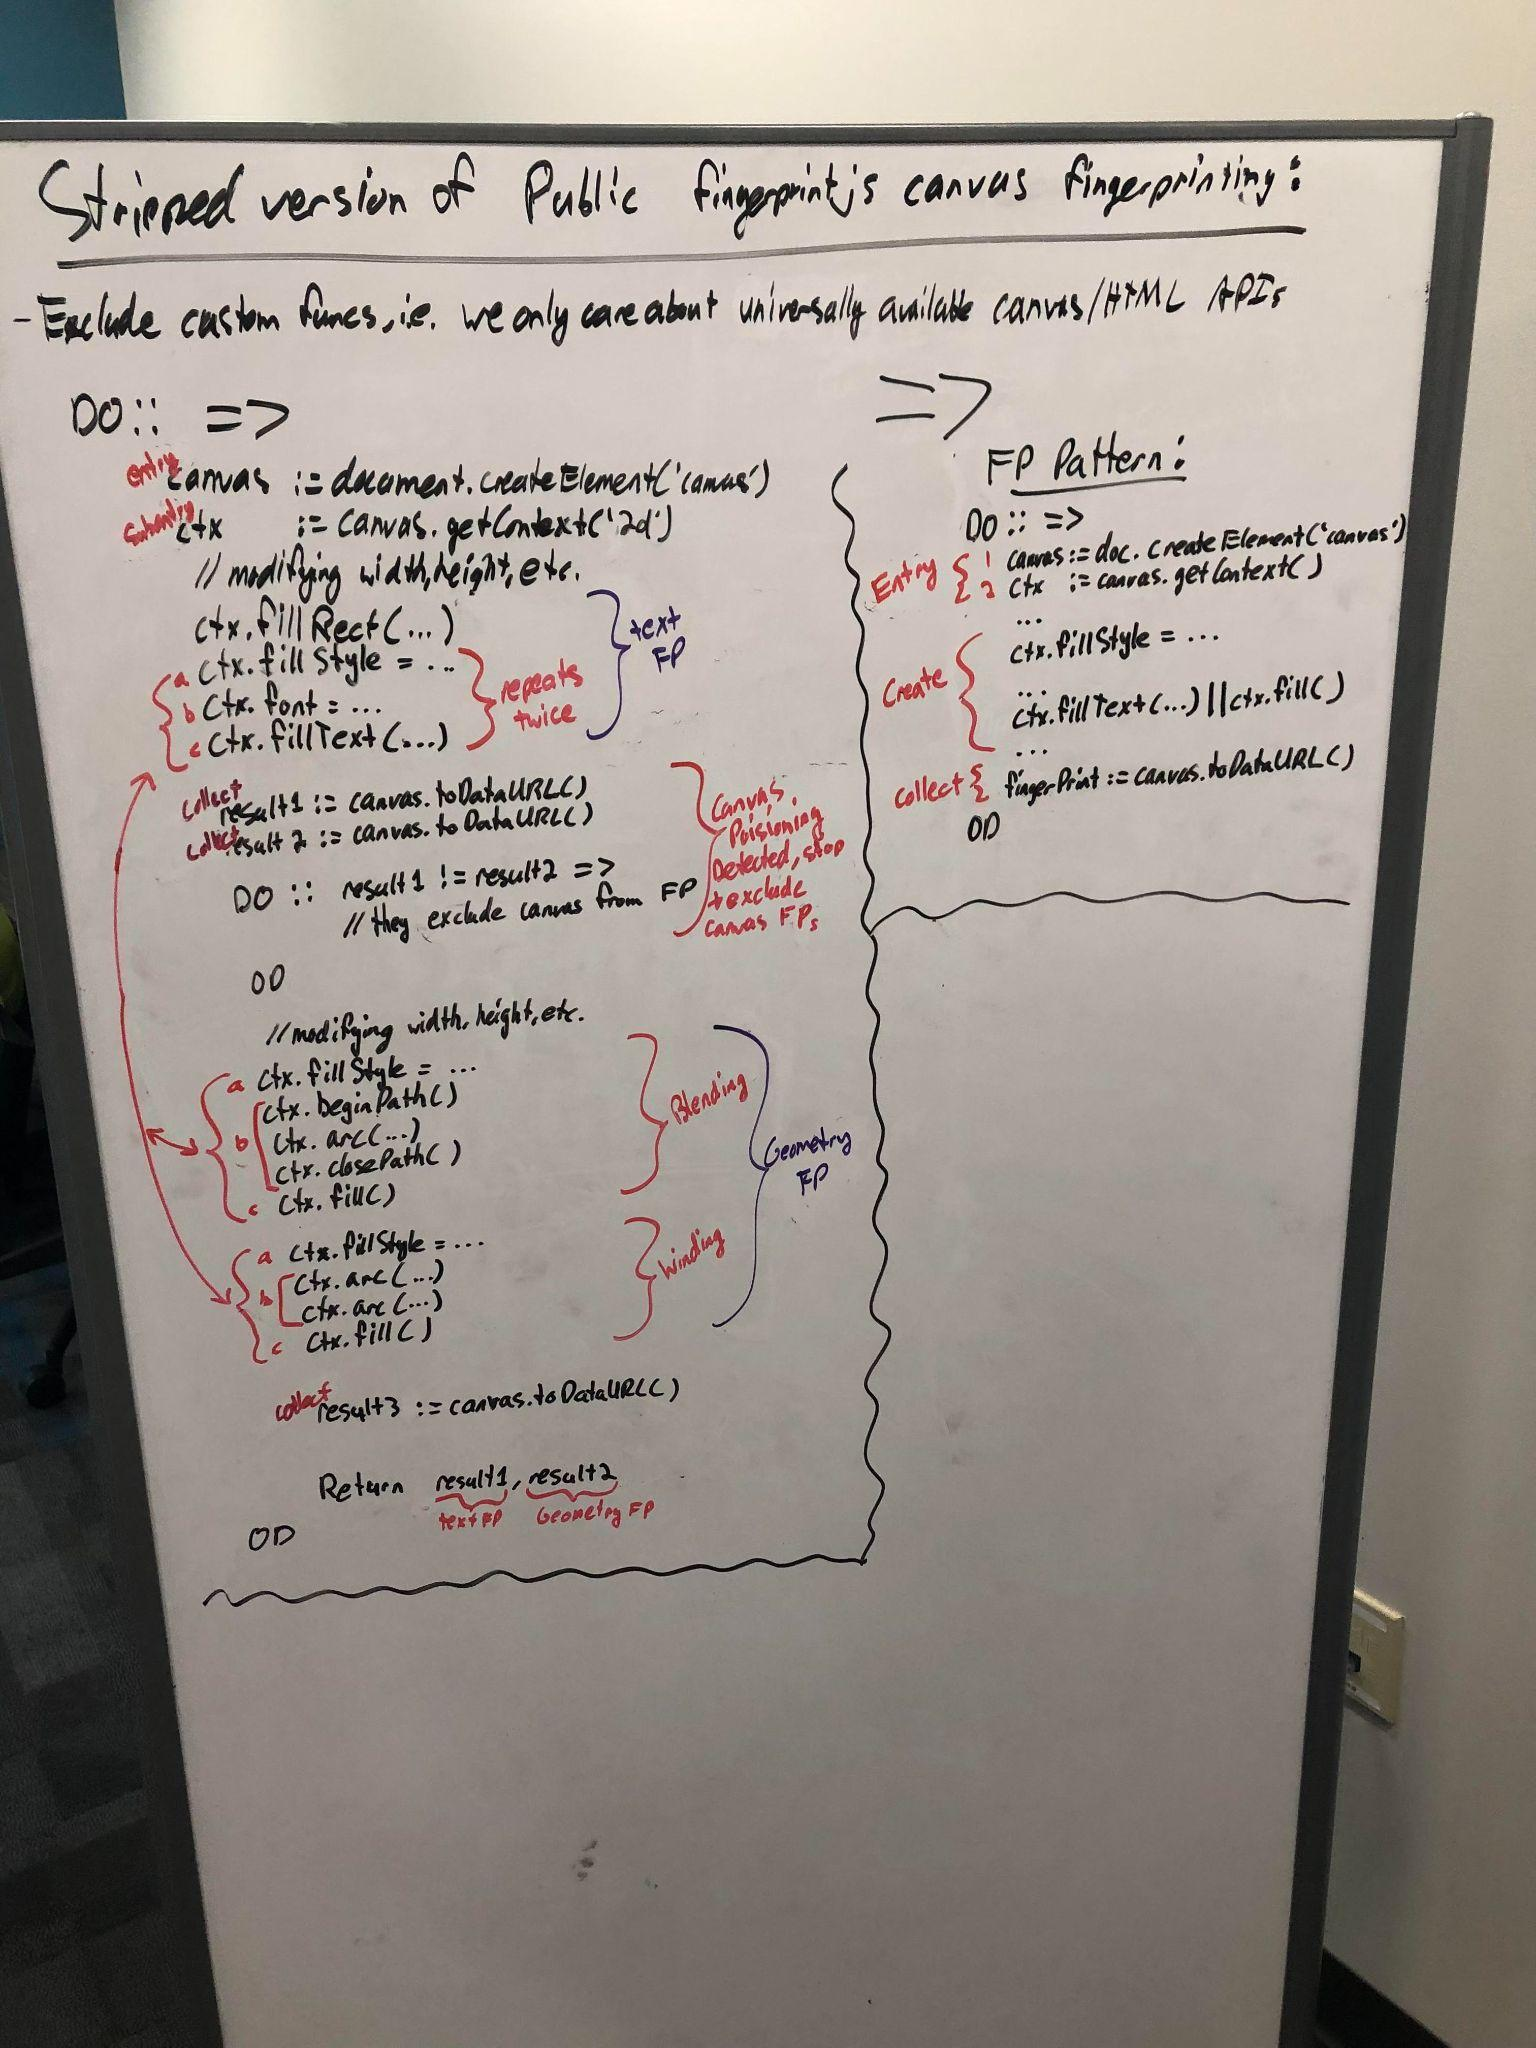 Stripped version of Public fingerprintjs canvas fingerprinting:
- Exclude custom funcs, i.e. we only care about universally available canvas/HTML APIs
DO :: =>
entry canvas := document.createElement('canvas')
Subentry ctx := canvas.getContext('2d')
// modifying width, height, etc.
ctx.fillRect(...)
a ctx.fillStyle = ...
b ctx.font = ...
c ctx.fillText(...)
repeats
twice
text
FP
collect result1 := canvas.toDataURL()
collect result2 := canvas.toDataURL()
DO :: result1 != result2 =>
// they exclude canvas from FP
OD
Canvas
Poisioning
Detected, stop
+ exclude
canvas FPs
// modifying width, height, etc.
a ctx.fillStyle = ...
b ctx.beginPath()
ctx.arc(...)
ctx.closePath()
c ctx.fill()
Blending
a ctx.fillStyle = ...
b ctx.arc(...)
ctx.arc(...)
c ctx.fill()
Winding
Geometry
FP
collect result3 := canvas.toDataURL()
Return result1, result2
text FP Geometry FP
OD
=>
FP Pattern:
DO :: =>
Entry { 1 canvas := doc.createElement('canvas')
2 ctx := canvas.getContext()
...
ctx.fillStyle = ...
Create { ...
ctx.fillText(...) || ctx.fill()
...
collect { fingerPrint := canvas.toDataURL()
OD